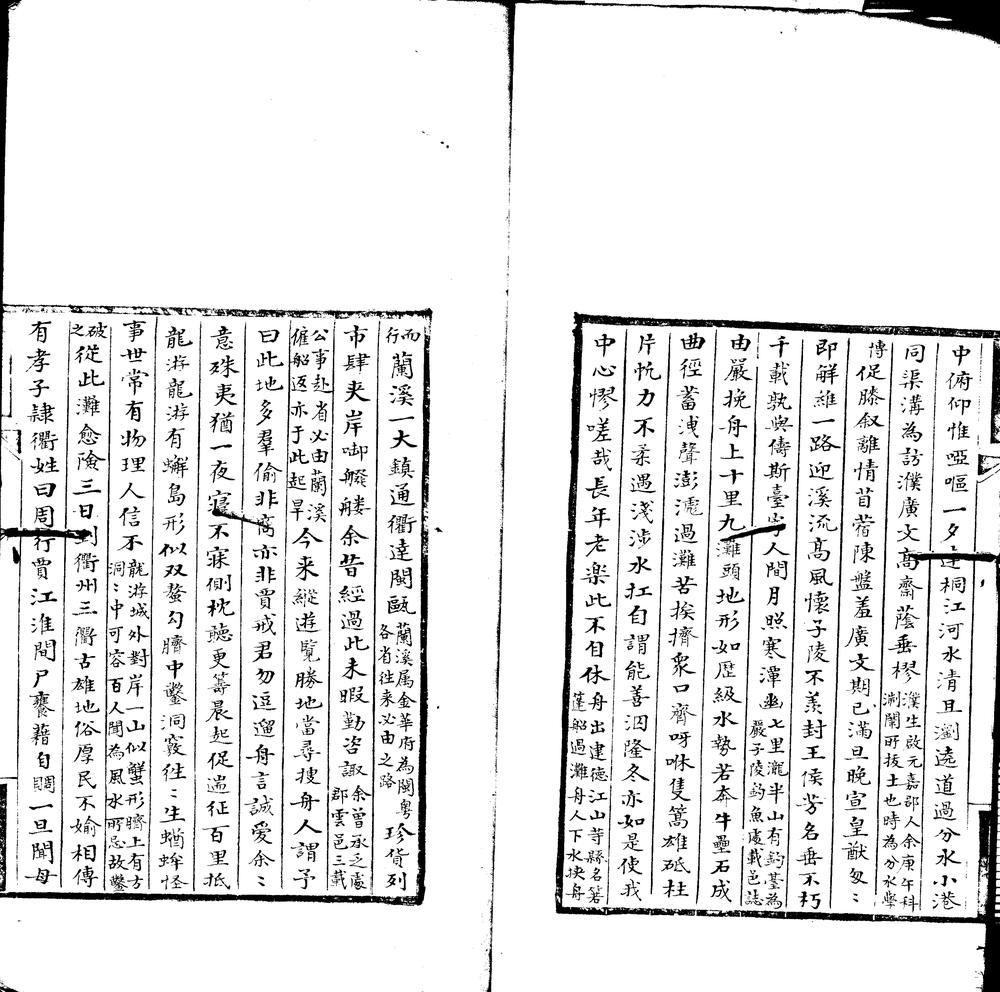 中俯仰惟啞嘔一夕達桐江河水清且瀏遶道過分水小港
同渠溝為訪濮廣文高齋蔭垂樛濮生啟元嘉郡人余庚午科浙闈所拔士也時為分水學
博促膝叙離情苜蓿陳盤羞廣文期已滿旦晚宣皇猷匆〻
即解維一路迎溪流高風懷子陵不羨封王侯芳名垂不朽
千載孰與儔斯臺峙人間月照寒潭幽七里瀧半山有釣臺為嚴子陵釣魚處載邑誌
由嚴挽舟上十里九灘頭地形如歷級水勢若奔牛壘石成
曲徑蓄洩聲澎滮過灘苦挨擠衆口齊呀咻隻篙雄砥柱
片帆力不柔遇淺涉水扛自謂能善泅隆冬亦如是使我
中心慘嗟哉長年老樂此不自休舟出建德江山等縣名箬篷船過灘舟人下水抉舟
而行蘭溪一大鎮通衢達閩甌蘭溪属金華府為閩粤各省徃来必由之路珍貨列
市肆夾岸啣艨艛余昔經過此未暇勤咨諏余曾承乏處郡雲邑三載
公事赴省必由蘭溪僱船返亦于此起旱今来縱遊覽勝地當尋捜舟人謂予
曰此地多羣偷非商亦非賈戒君勿逗遛舟言誠愛余〻
意殊夷猶一夜寢不寐側枕聽更籌晨起促遄征百里抵
龍游龍游有蠏島形似双螯勾臍中鑿洞竅徃〻生蝤蛑怪
事世常有物理人信不龍游城外對岸一山似蟹形臍上有方洞〻中可容百人聞為風水所忌故鑿
破之從此灘愈險三日到衢州三衢古雄地俗厚民不媮相傳
有孝子隸衢姓曰周行賈江淮間尸饔藉自賙一旦聞母